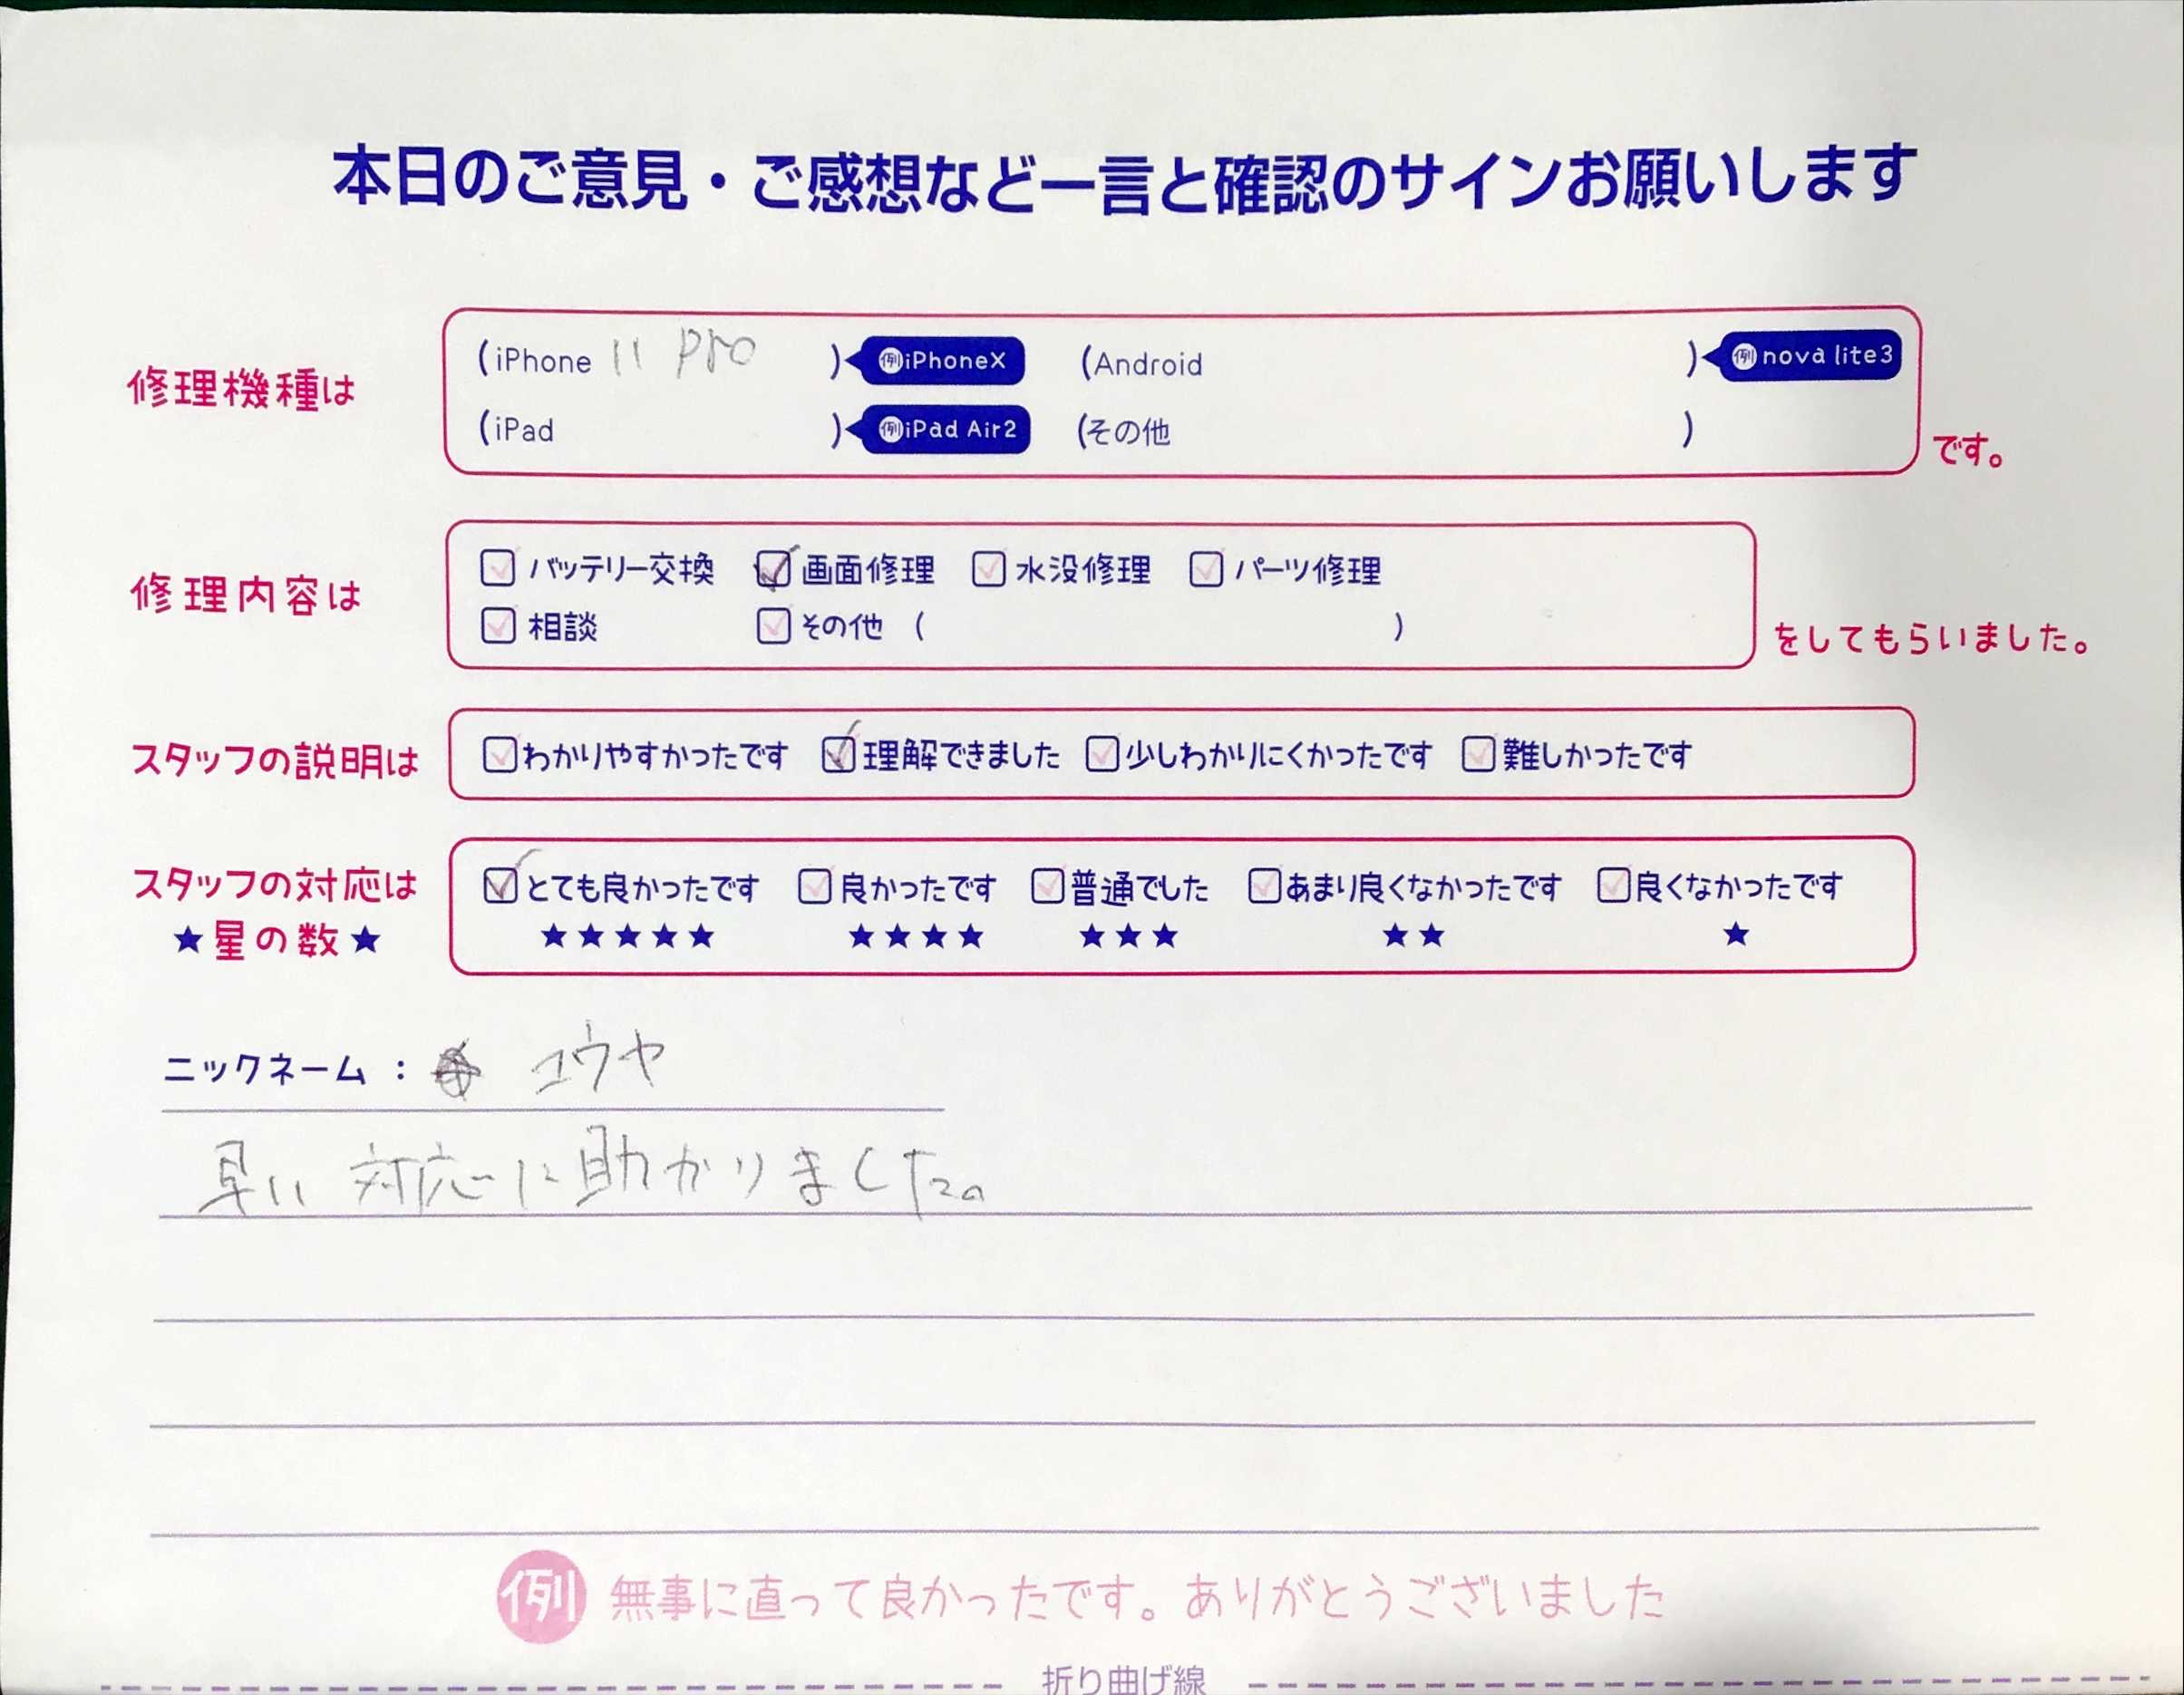 本日のご意見・ご感想など一言と確認のサインお願いします
修理機種は
(iPhone 11 pro ) 例iPhoneX (Android ) 例nova lite3
(iPad ) 例iPad Air2 (その他 ) です。
修理内容は
バッテリー交換 画面修理 水没修理 パーツ修理
相談 その他 ( ) をしてもらいました。
スタッフの説明は わかりやすかったです 理解できました 少しわかりにくかったです 難しかったです
スタッフの対応は とても良かったです 良かったです 普通でした あまり良くなかったです 良くなかったです
★星の数★ ★★★★★ ★★★★ ★★★ ★★ ★
ニックネーム： ユウヤ
早い対応に助かりました。
例 無事に直って良かったです。ありがとうございました
折り曲げ線